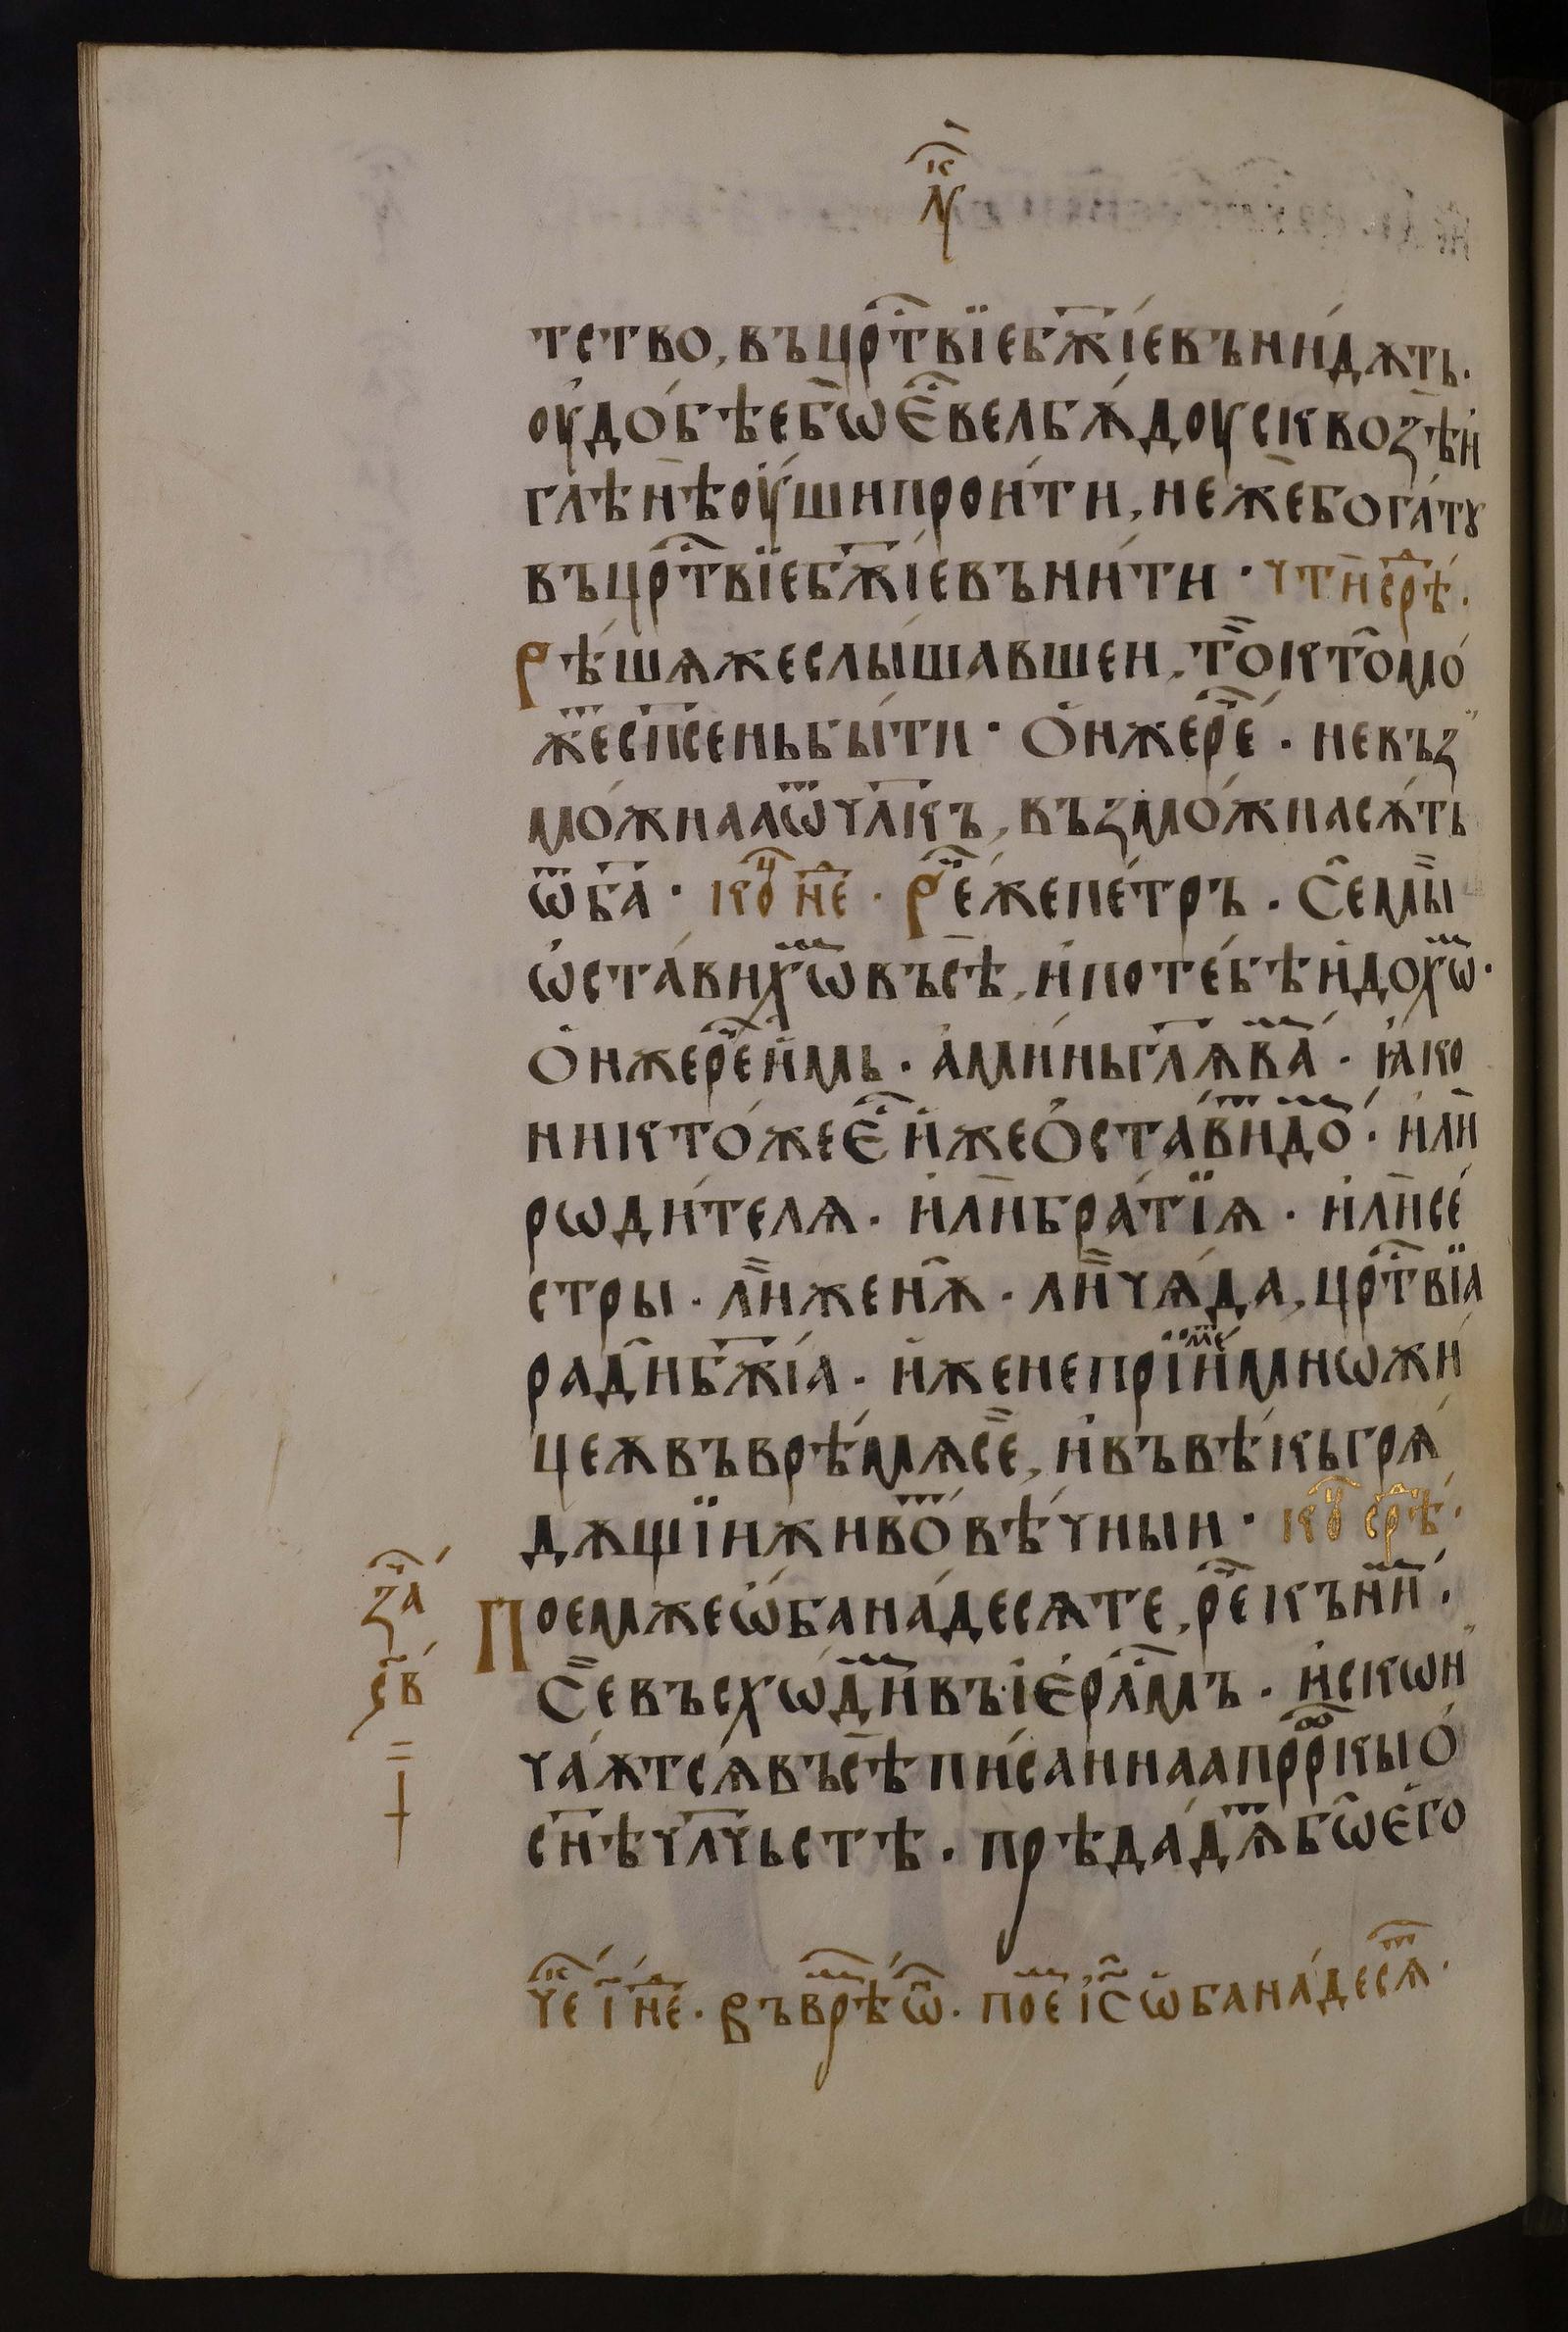 тство, въ цр҃твїе бж҃їе вънидѫть.
оудо́бѣе бо є҆ велбѫ́доу сквозѣ и҆
глѣнѣ оу́ши прои́ти, неже бога́тꙋ
въ цр҃твїе бж҃їе въни́ти · чти срѣ́.
Рѣ́шѧ же слы́шавшеи, то кто мо́
же сп҃сень бы́ти · Ѻ҆н же ре́ . не въз
мо́жнаа ѿ чл҃къ, възмо́жна сѫ́ть
ѿ б҃а · ко҃ не . Ре́ же пе́тръ . Се мы
ѡ҆ста́вихѡ въсѣ, и҆ по те́бѣ и҆дохѡ ·
Ѻ҆н же ре и҆мь . а҆ми́нь гл҃ѧ ва́ . ꙗ҆ко
никто́же є҆ и҆же ѻ҆ста́ви до́ . и҆ли
рѡди́телѧ . и҆ли бра́тїѧ . и҆ли се́
стры . ли женѫ . ли чѧ́да, цр҃твїа
ради бж҃їа . и҆же не прїи́ме мнѡжи́
цеѫ въ врѣ́мѧ се, и҆ въ вѣ́кь грѧ́
дѫщїи живо́ вѣ́чныи · ко҃ срѣ́.
Поем же ѡ҆бана́десѧте, ре къ ни́ .
Се въсхѡ́ди въ і҆єрл҃мъ . и҆ скѡн
ча́ѫтсѧ въсѣ пи́саннаа прр҃кы ѻ҆
сн҃ѣ чл҃чьстѣ . прѣдадѧ́ бо є҆го
за́
св҃
че і҃ не́ . Въ врѣ́ ѡ҆. пое і҆с҃ ѡ҆бана́десѧ .